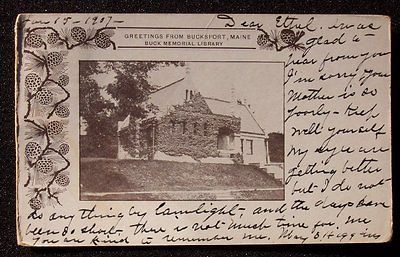 Jan 15 - 1907 -
GREETINGS FROM BUCKSPORT, MAINE
BUCK MEMORIAL LIBRARY
Dear Ethel. - was
glad to
hear from you
I'm sorry your
Mother is so
poorly - Keep
well yourself
my eyes are
getting better
but I do not
do anything by lamplight, and the days have
been so short, there is not much time for me
You are kind to remember me. Mary